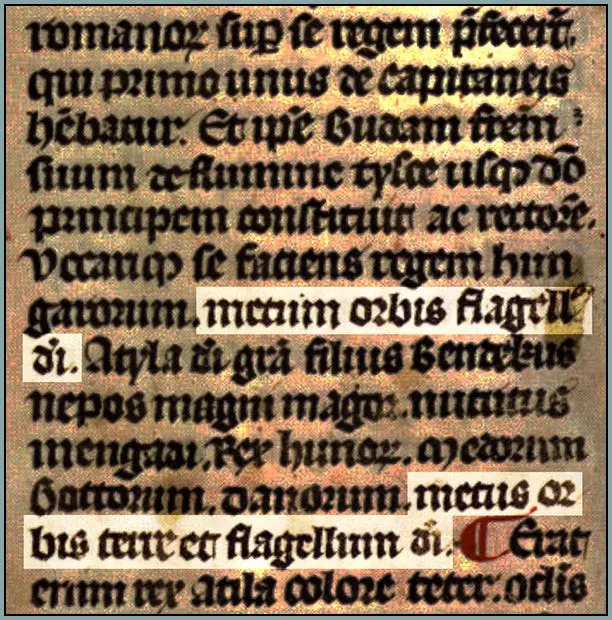 romanoꝝ suꝑ se regem p̄fecert̄.
qui primo unus de capitaneis
hēbatur. Et ip̄e Budam frēm
suum de flumine tysce usqꝫ dō
principem constituit ac rectorē.
Vocariqꝫ se faciens regem hun
garorum. metum orbis flagellū
dī. Atyla dī grā filius Bendekus
nepos magni magor. nutritus
in engadi. Rex hunoꝝ. Medorum
Gottorum. danorum. metus or
bis terre et flagellum dī. Erat
enim rex atila colore teter. oclīs